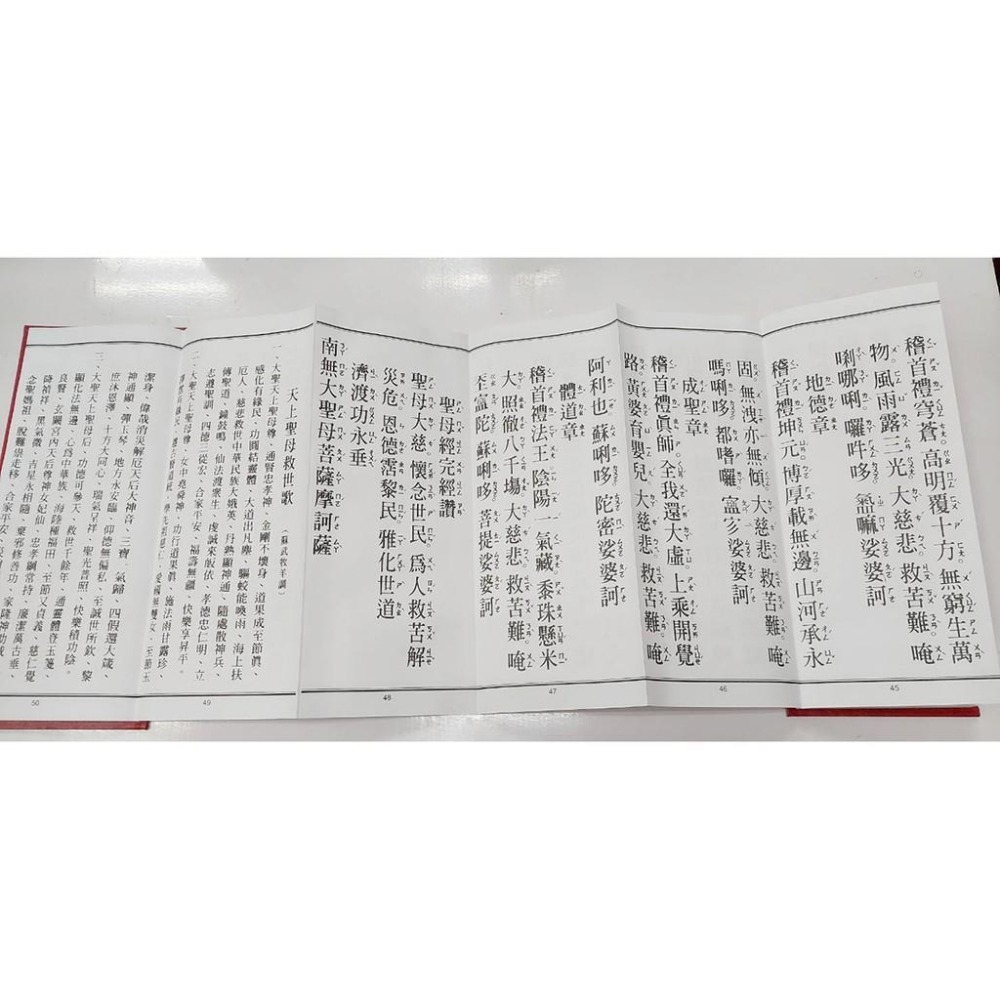 稽首禮穹蒼 高明覆十方。無窮生萬
物。風雨露三光 大慈悲 救苦難 唵
唎哪唎 囉吽哆 𥁊嘛娑婆訶
地德章
稽首禮坤元 博厚載無邊。山河承永
固。無洩亦無傾 大慈悲 救苦難 唵
嗎唎哆 都嗜囉 娑婆訶
成聖章
稽首禮眞師。全我還大虛 上乘開覺
路 黃婆育嬰兒 大慈悲 救苦難 唵
阿利也 蘇唎哆 陀密娑婆訶
體道章
稽首禮法王 陰陽一氣藏 黍珠懸米
大 照徹八千場 大慈悲 救苦難 唵
陀 蘇唎哆 菩提娑婆訶
聖母經完經讚
聖母大慈 懷念世民 爲人救苦解
災危 恩德霑黎民 雅化世道
濟渡功永垂
南無大聖母菩薩摩訶薩
45
46
47
48
天上聖母救世歌 (蘇武牧羊調)
一、大聖天上聖母尊、通賢忠孝神、金剛不壞身、道果成至節眞、
感化有緣民、功圓結靈體、大道出凡塵、驅蛟能喚雨、海上扶
厄人、慈悲救世中華民族大娥英、丹熱顯神通、隨處散神兵、
傳聖道、鐘鼓鳴、仙法渡衆生、虔誠來皈依、孝德忠仁明、立
志遵聖訓、四德三從宏、合家平安、福壽無疆、快樂享昇平。
二、大聖天上聖母尊、女中堯舜神、功行道果眞、施法雨甘露珍、
愛國無雙女、至節玉
49
潔身、偉哉消災解厄天后大神音、三寶、氣歸、四假還大歲、
神通顯、彈五琴、地方永安臨、仰德無偏私、至誠世所欽、黎
庶沐恩澤、十方大同心、瑞氣呈祥、聖光普照、快樂積功陰。
三、大聖天上聖母后、功德可參天、救世千餘年、通靈體登玉箋、
顯化法無邊、心爲中華族、海陸種福田、至節又貞義、慈仁覺
良賢、玄關宮內天后尊神女妃仙、忠孝綱常持、廉潔萬古垂、
降禎祥、黑氣微、吉星永相隨、棄邪修善功、家隆神功成、
念聖媽祖、脫難祟走移、合家平安、
50